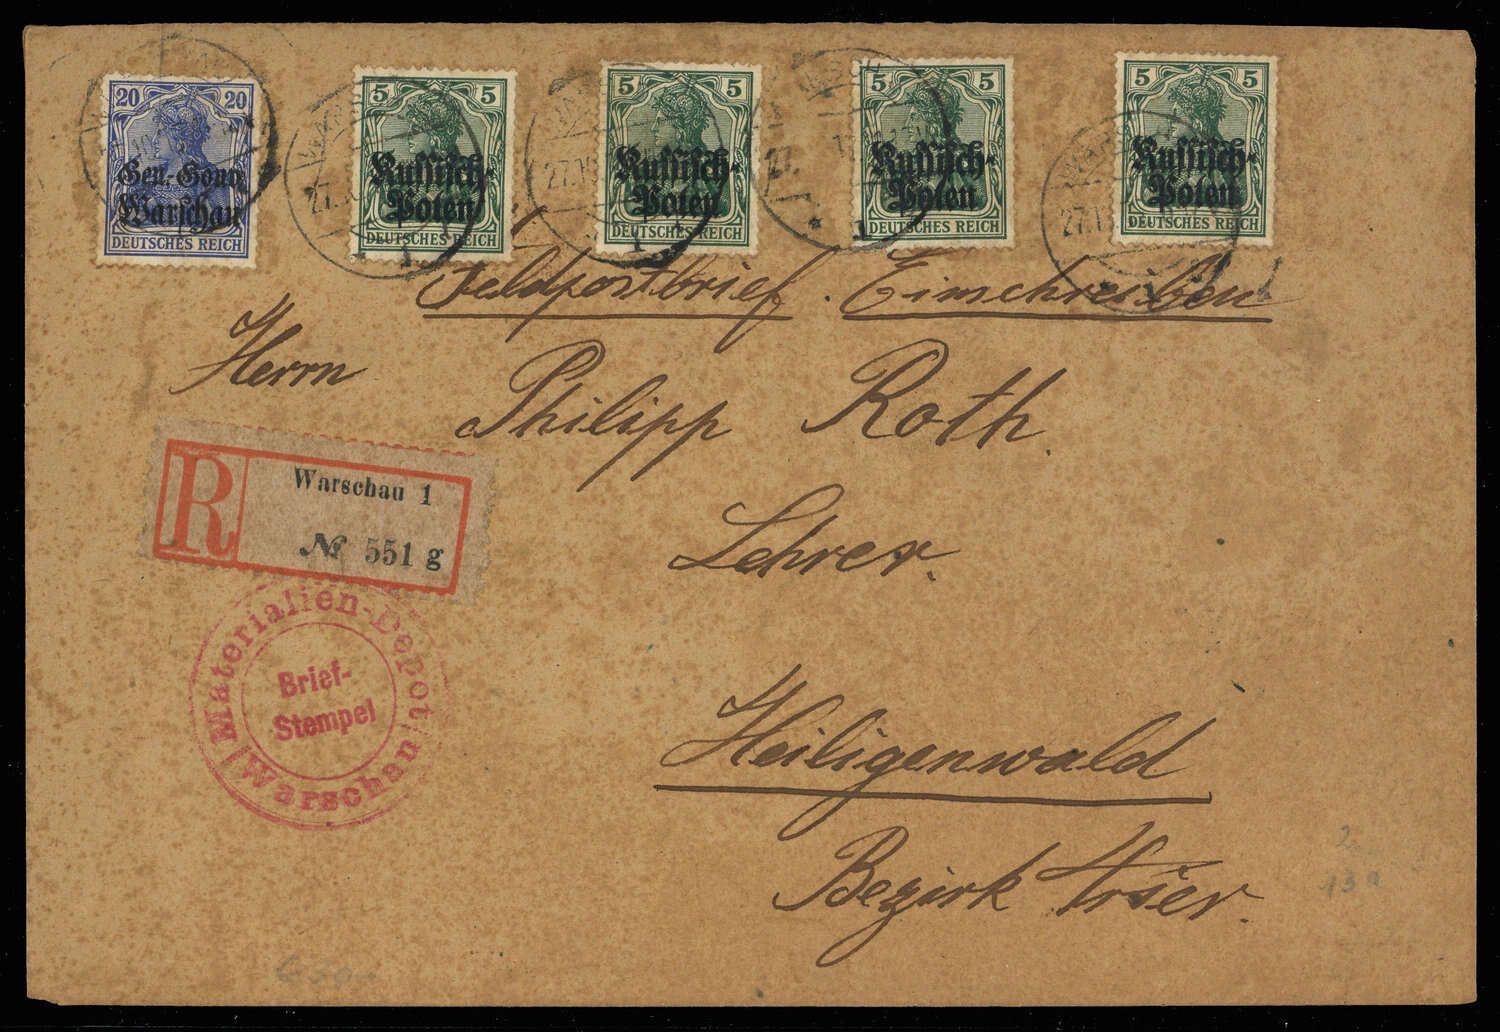 20 20
Gen.-Gouv.
Warschau
DEUTSCHES REICH
5 5
Russisch-
Polen
DEUTSCHES REICH
5 5
Russisch-
Polen
DEUTSCHES REICH
5 5
Russisch-
Polen
DEUTSCHES REICH
5 5
Russisch-
Polen
DEUTSCHES REICH
Feldpostbrief. Einschreiben
Herrn Philipp Roth.
Lehrer.
Heiligenwald
Bezirk Trier.
R Warschau 1
№ 551 g
Materialien-Depot
Warschau
Brief-
Stempel